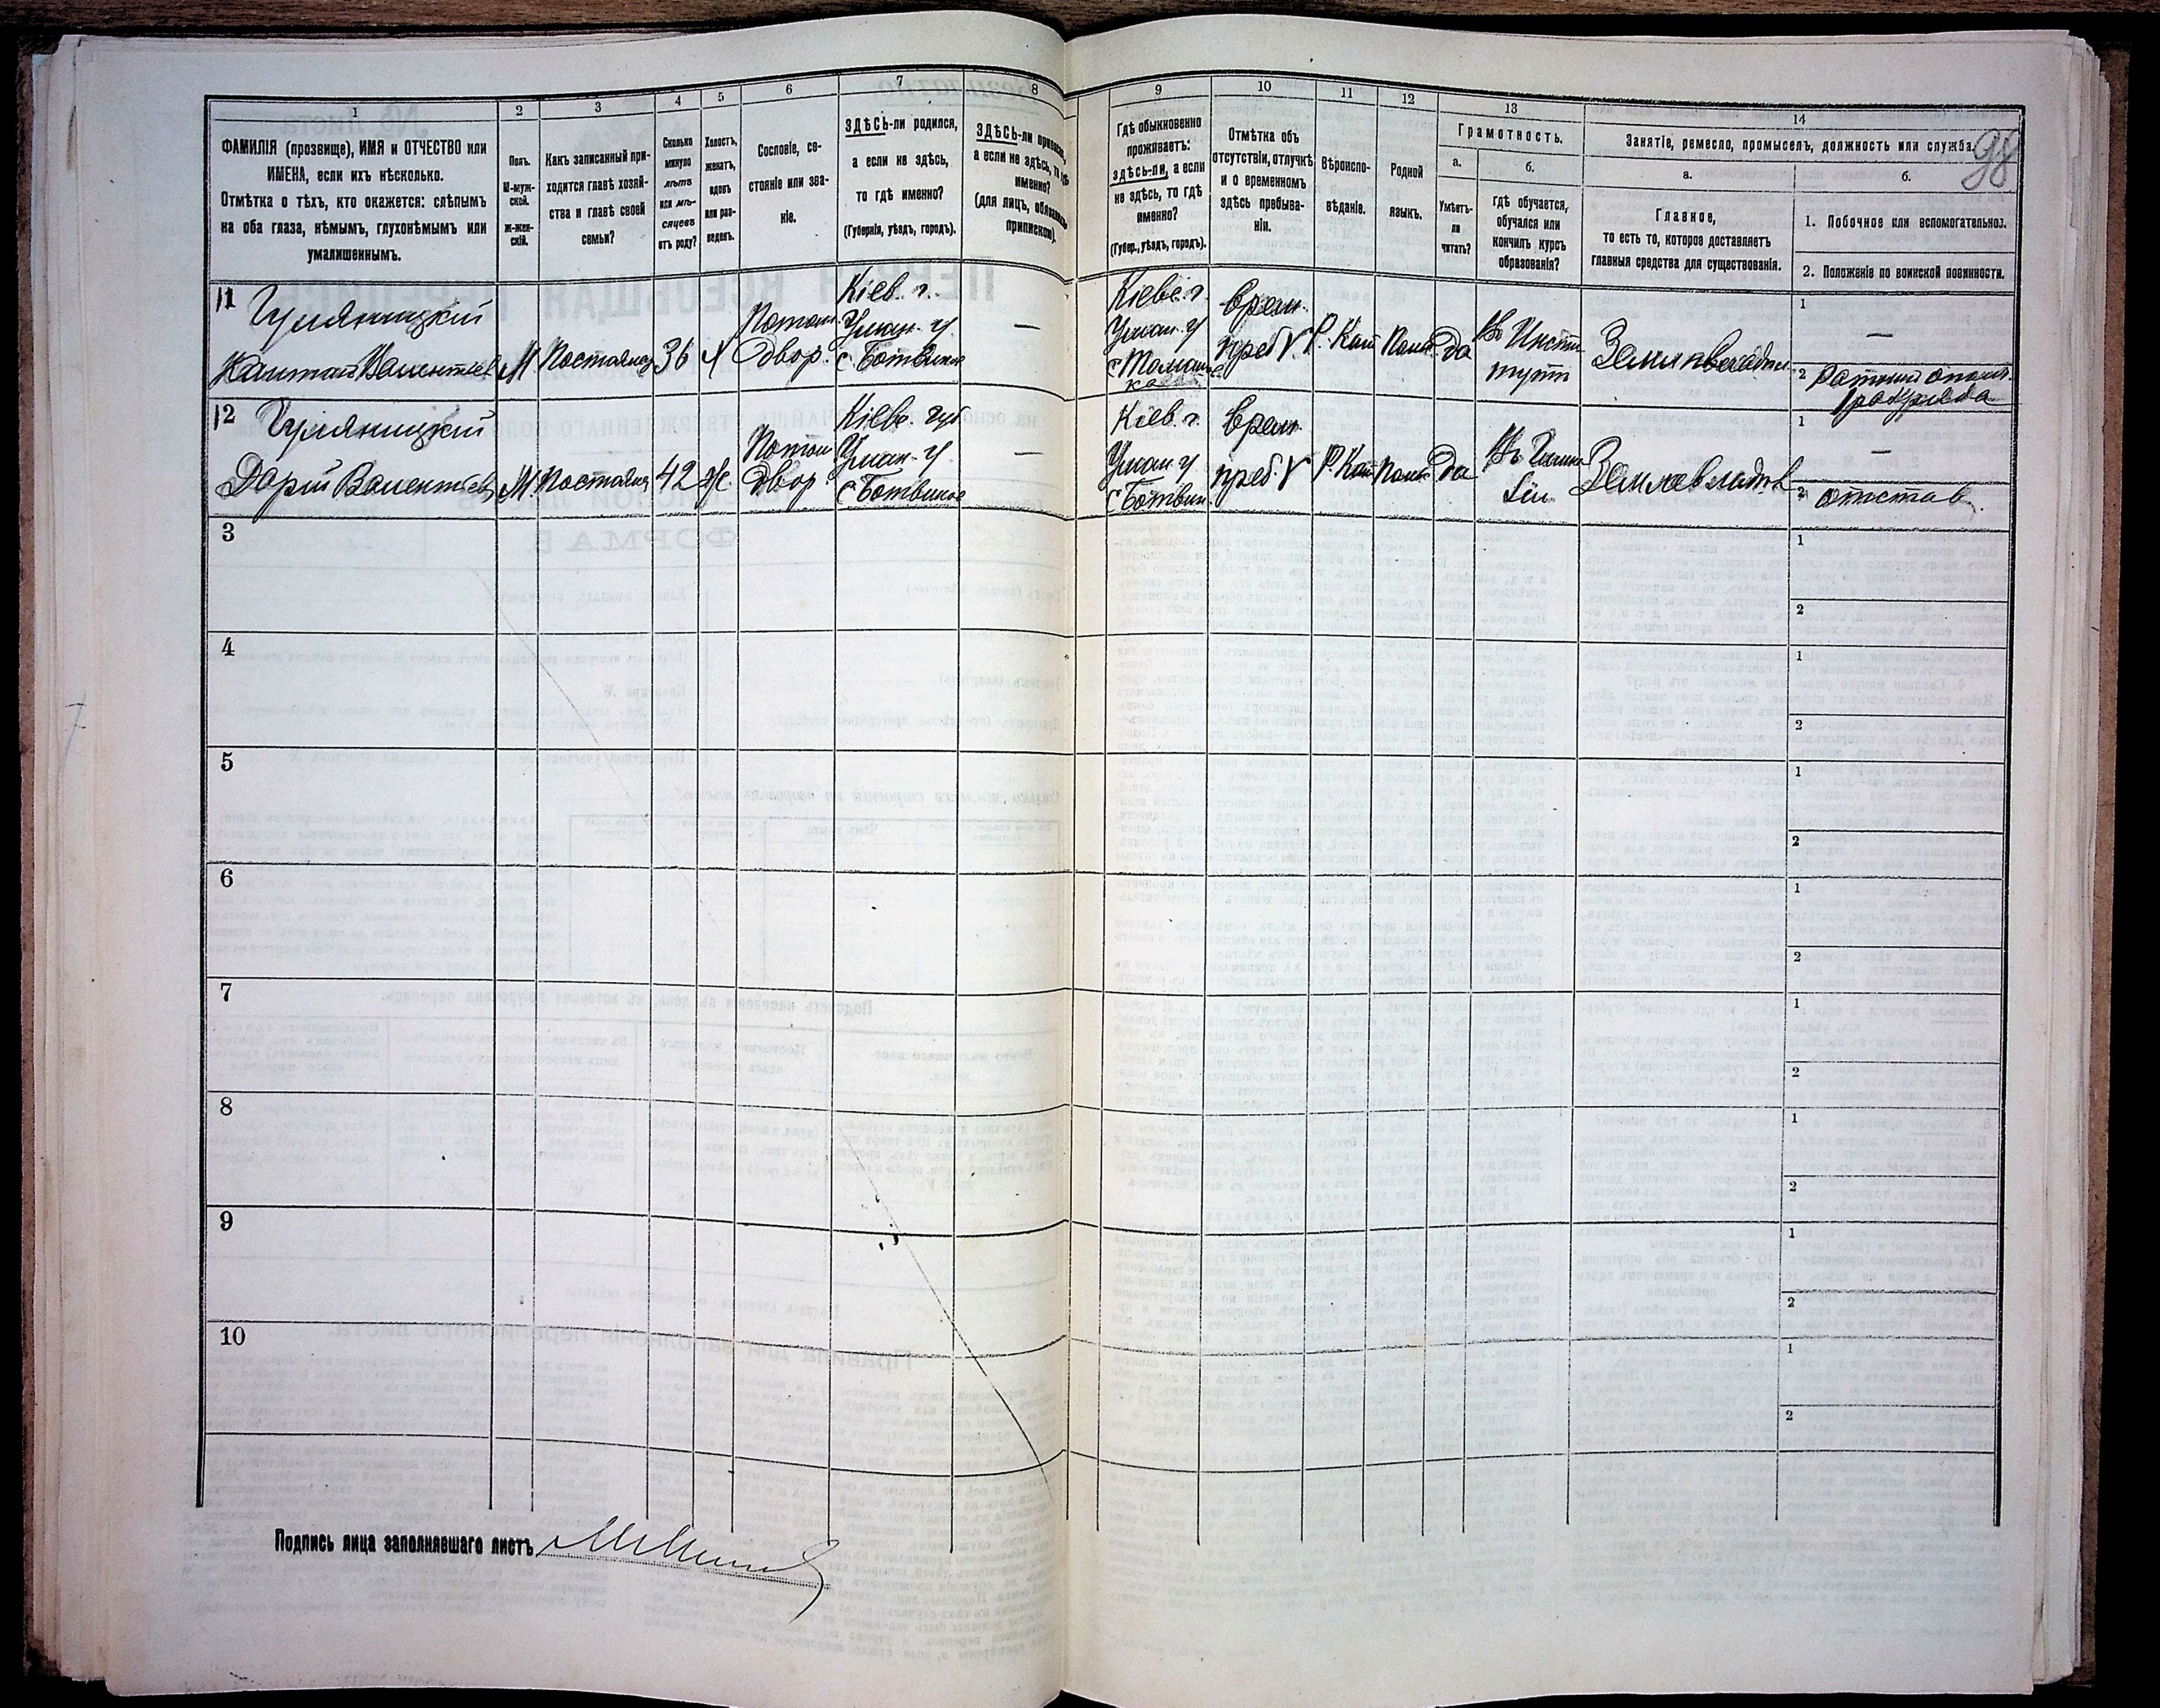 98
1
2
3
4
5
6
7
8
9
10
11
12
13
14
ФАМИЛІЯ (прозвище), ИМЯ и ОТЧЕСТВО или
ИМЕНА, если ихъ нѣсколько.
Отмѣтка о тѣхъ, кто окажется: слѣпымъ
на оба глаза, нѣмымъ, глухонѣмымъ или
умалишеннымъ.
Полъ.
М-муж-
ской.
Ж-жен-
скій.
Какъ записанный при-
ходится главѣ хозяй-
ства и главѣ своей
семьи?
Сколько
минуло
лѣтъ
или мѣ-
сяцевъ
отъ роду?
Холостъ,
женатъ,
вдовъ
или раз-
веденъ.
Сословіе, со-
стояніе или зва-
ніе.
ЗДѢСЬ-ли родился,
а если не здѣсь,
то гдѣ именно?
(Губернія, уѣздъ, городъ).
ЗДѢСЬ-ли приписанъ,
а если не здѣсь, то гдѣ
именно?
(для лицъ, обязанныхъ
припискою).
Гдѣ обыкновенно
проживаетъ:
здѣсь-ли, а если
не здѣсь, то гдѣ
именно?
(Губер., уѣздъ, городъ).
Отмѣтка объ
отсутствіи, отлучкѣ
и о временномъ
здѣсь пребыва-
ніи.
Вѣроиспо-
вѣданіе.
Родной
языкъ.
Грамотность.
а.
б.
Умѣетъ-
ли
читать?
Гдѣ обучается,
обучался или
кончилъ курсъ
образованія?
Занятіе, ремесло, промыселъ, должность или служба.
а.
б.
Главное,
то есть то, которое доставляетъ
главныя средства для существованія.
1. Побочное или вспомогательное.
2. Положеніе по воинской повинности.
11
Гуляницкій
М
36
Х
Потом.
Двор.
Кіев. г.
Уман. у
—
Уман. у
врем.
преб.
Р. Кат
Да
Въ Инсти
тутѣ
1
—
2
12
Гуляницкій
Дарій Валентьев
М
42
Ж.
Потом
Двор
Кіев. губ
Уман. у
—
Кіев. г.
Уман. у
врем.
преб.
Р. Кат
Да
1
—
2 отстав.
3
1
2
4
1
2
5
1
2
6
1
2
7
1
2
8
1
2
9
1
2
10
1
2
Подпись лица заполнявшаго листъ